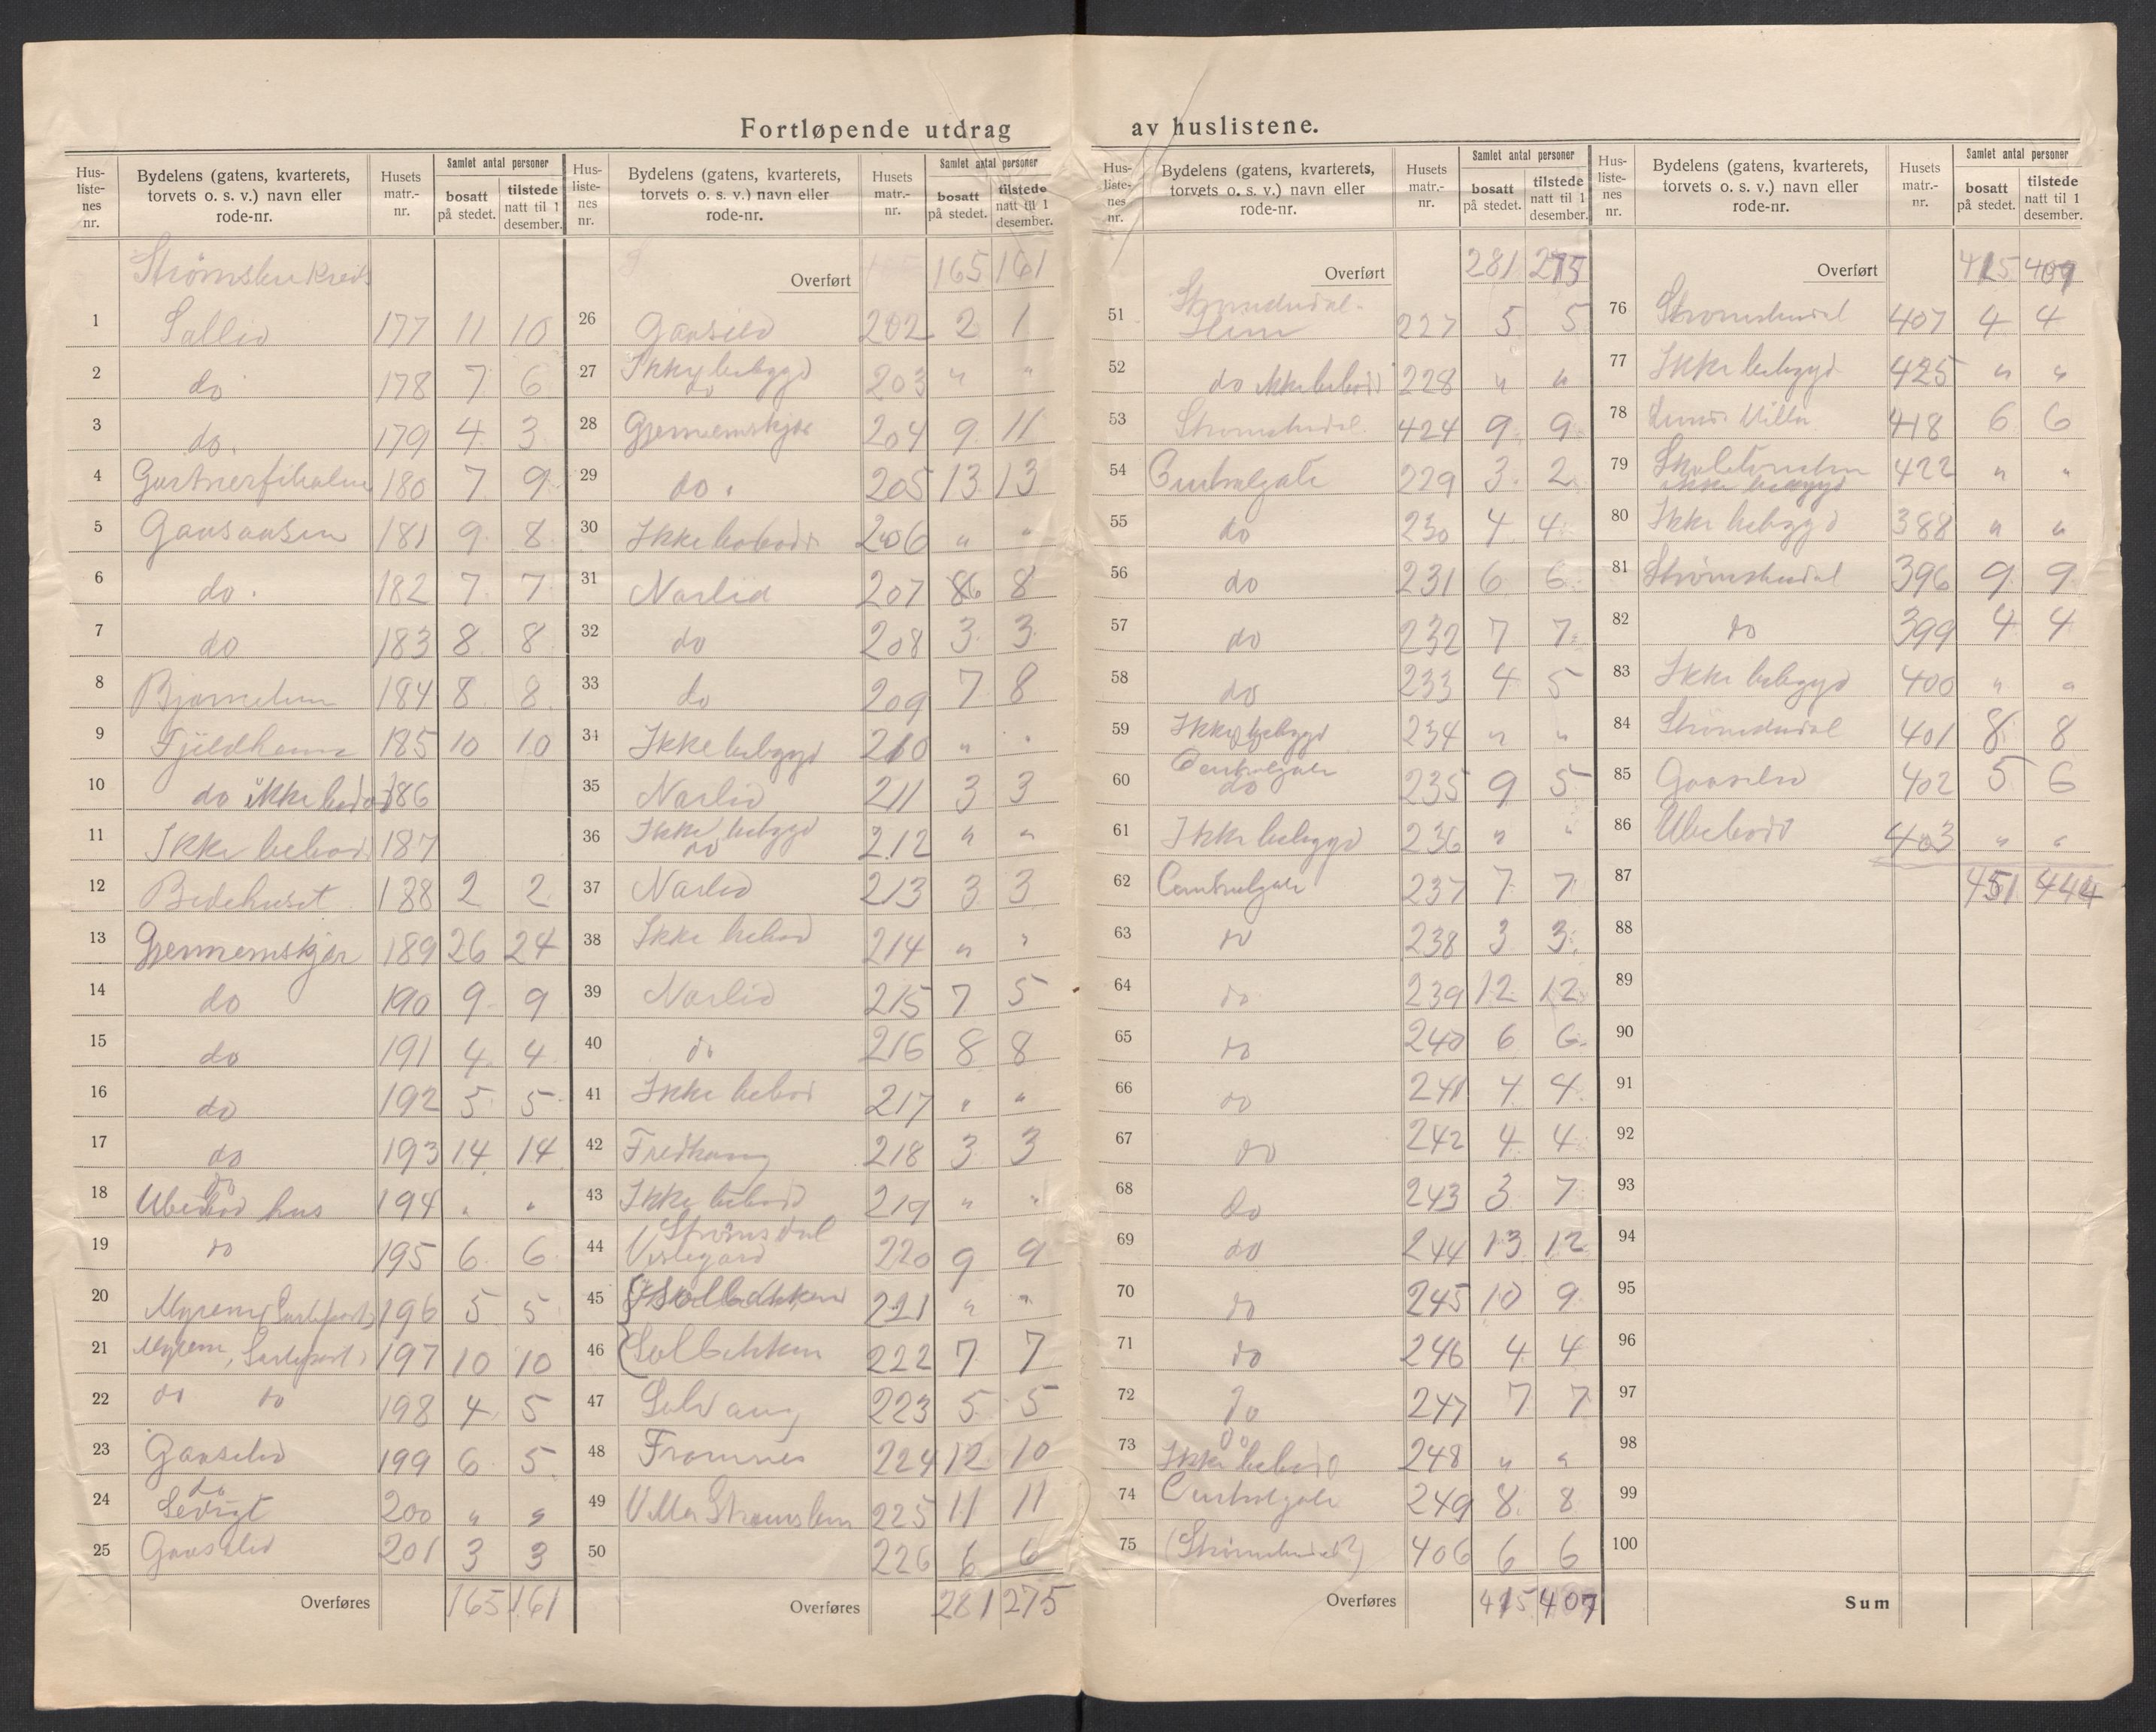 Fortløpende utdrag av huslistene.
Hus-liste-nes nr. | Bydelens (gatens, kvarterets, torvets o. s. v.) navn eller rode-nr. | Husets matr.-nr. | Samlet antal personer | bosatt på stedet. | tilstede natt til 1 desember.
Strømslien Kreds
1 Sollid 177 11 10
2 do 178 7 6
3 do. 179 4 3
4 Gartnerfiholm 180 7 9
5 Gaasaasen 181 9 8
6 do. 182 7 7
7 do 183 8 8
8 184 8 8
9 Fjeldheim 185 10 10
10 do ikke bebod 186
11 Ikke bebod 187
12 Bedehuset 188 2 2
13 Gjennemskjær 189 26 24
14 do 190 9 9
15 do 191 4 4
16 do 192 5 5
17 do 193 14 14
18 do Ubebod hus 194 " "
19 do 195 6 6
20 Myrem 196 5 5
21 Myrem 197 10 10
22 do do 198 4 5
23 Gaaselid 199 6 5
24 do Ledigt 200 " "
25 Gaaselid 201 3 3
Overføres 165 161
Hus-liste-nes nr. | Bydelens (gatens, kvarterets, torvets o. s. v.) navn eller rode-nr. | Husets matr.-nr. | Samlet antal personer | bosatt på stedet. | tilstede natt til 1 desember.
Overført 165 161
26 Gaaselid 202 2 1
27 Ikke bebygd do 203 " "
28 Gjennemskjær 204 9 11
29 do. 205 13 13
30 Ikke bebodd 206 " "
31 Norlid 207 8 6 8
32 do 208 3 3
33 do 209 7 8
34 Ikke bebygd 210 " "
35 Norlid 211 3 3
36 Ikke bebygd do 212 " "
37 Norlid 213 3 3
38 Ikke bebod 214 " "
39 Norlid 215 7 5
40 do 216 8 8
41 Ikke bebod 217 " "
42 Fredhaug 218 3 3
43 Ikke bebod 219 " "
44 Strømsdal Vestegard 220 9 9
45 Solbakken 221 " "
46 Solbakken 222 7 7
47 Solvang 223 5 5
48 Fromnes 224 12 10
49 Villa Strømslien 225 11 11
50 226 6 6
Overføres 281 275
Hus-liste-nes nr. | Bydelens (gatens, kvarterets, torvets o. s. v.) navn eller rode-nr. | Husets matr.-nr. | Samlet antal personer | bosatt på stedet. | tilstede natt til 1 desember.
Overført 281 275
51 227 5 5
52 do ikke bebod 228 " "
53 Strømslundal 424 9 9
54 Centralgate 229 3 2
55 do 230 4 4
56 do 231 6 6
57 do 232 7 7
58 do 233 4 5
59 Ikke bebygd 234 " "
60 Centralgate do 235 9 5
61 Ikke bebygd 236 " "
62 Centralgate 237 7 7
63 do 238 3 3
64 do 239 12 12
65 do 240 6 6
66 do 241 4 4
67 do 242 4 4
68 do 243 3 7
69 do 244 13 12
70 do 245 10 9
71 do 246 4 4
72 do 247 7 7
73 do Ikke bebod 248 " "
74 Centralgate 249 8 8
75 406 6 6
Overføres 415 407
Hus-liste-nes nr. | Bydelens (gatens, kvarterets, torvets o. s. v.) navn eller rode-nr. | Husets matr.-nr. | Samlet antal personer | bosatt på stedet. | tilstede natt til 1 desember.
Overført 415 407
76 Strømslundal 407 4 4
77 Ikke bebygd 425 " "
78 Villa 418 6 6
79 ikke bebygd 422 " "
80 Ikke bebygd 388 " "
81 Strømslundal 396 9 9
82 do 399 4 4
83 Ikke bebygd 400 " "
84 Strømslundal 401 8 8
85 Gaaselid 402 5 6
86 Ubebodd 403 " "
87 451 444
88
89
90
91
92
93
94
95
96
97
98
99
100
Sum